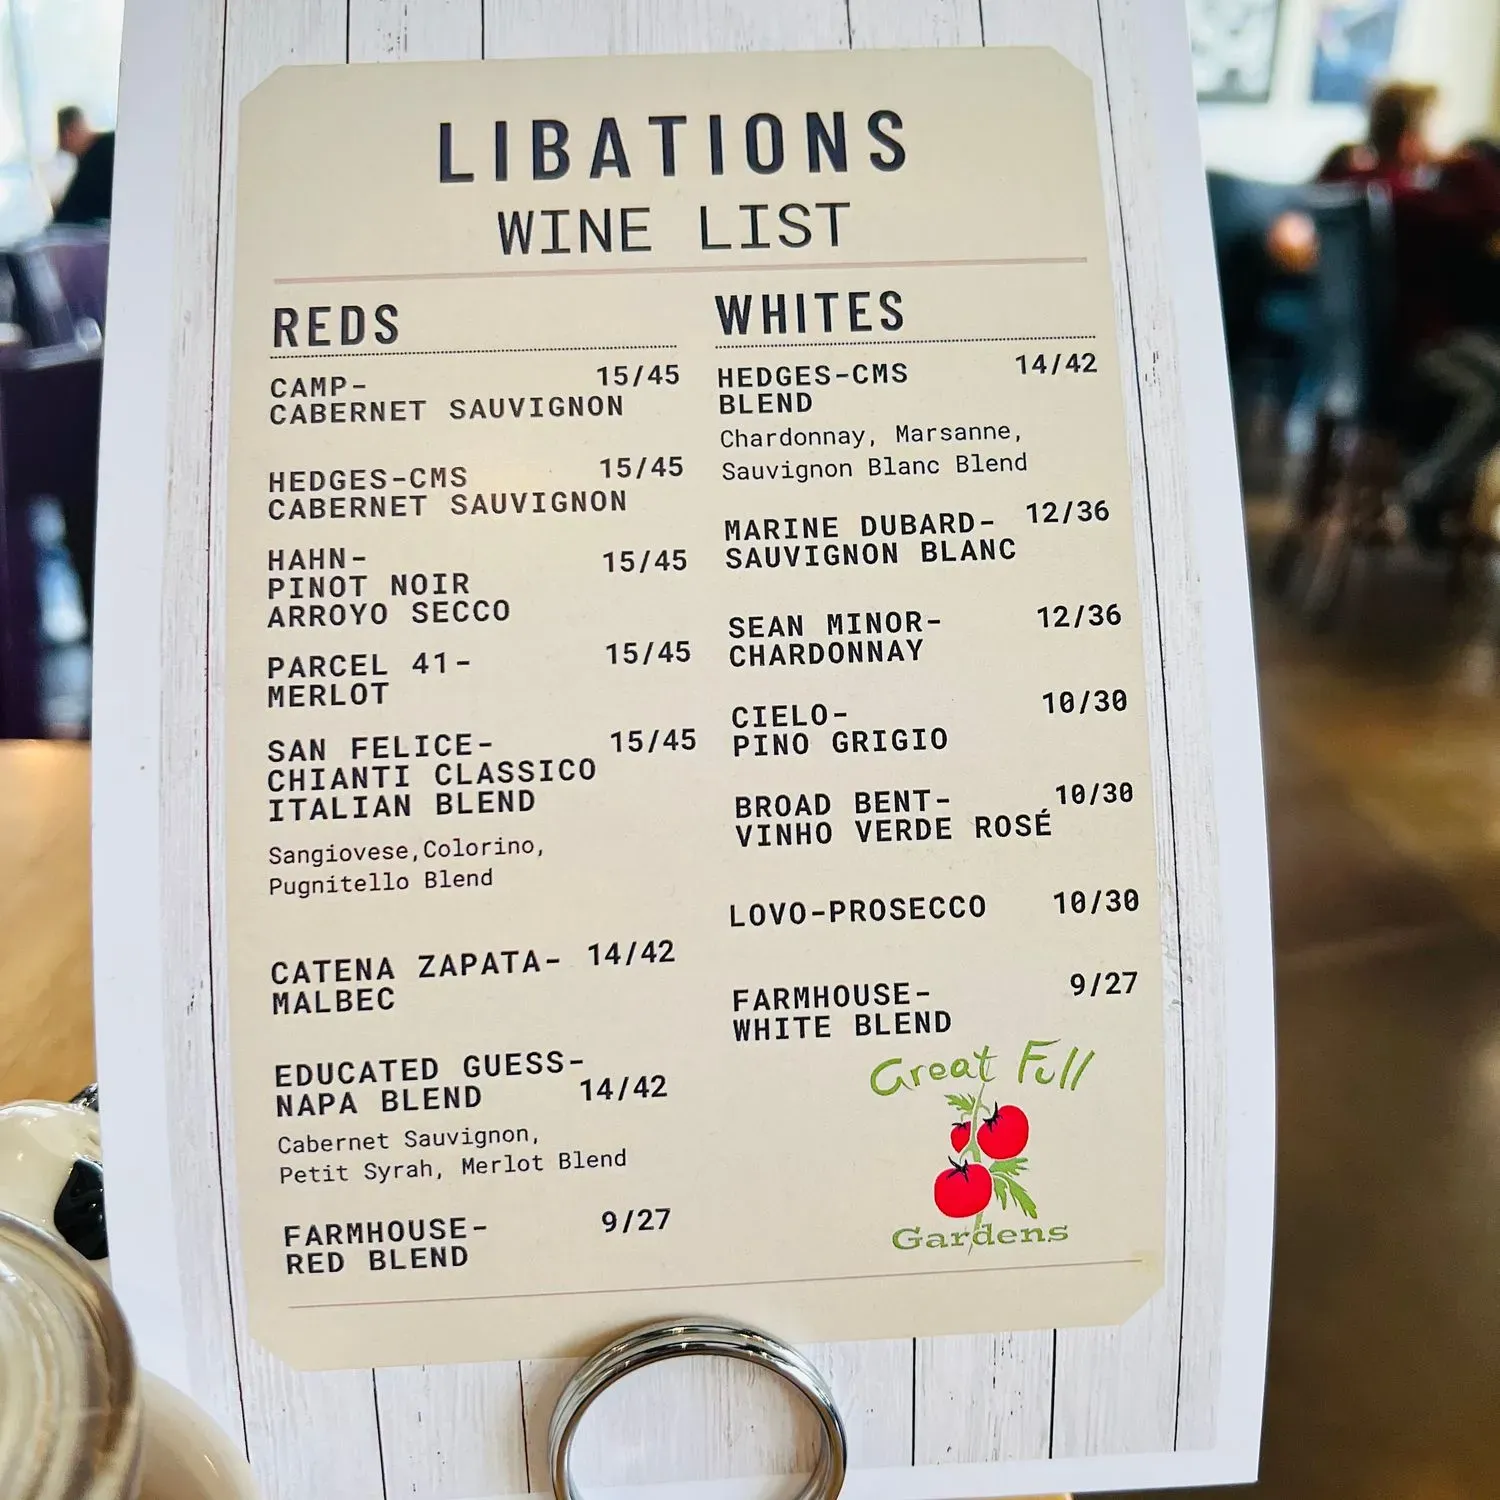 LIBATIONS
WINE LIST
REDS
CAMP- 15/45
CABERNET SAUVIGNON
HEDGES-CMS 15/45
CABERNET SAUVIGNON
HAHN- 15/45
PINOT NOIR
ARROYO SECCO
PARCEL 41- 15/45
MERLOT
SAN FELICE- 15/45
CHIANTI CLASSICO
ITALIAN BLEND
Sangiovese,Colorino,
Pugnitello Blend
CATENA ZAPATA- 14/42
MALBEC
EDUCATED GUESS-
NAPA BLEND 14/42
Cabernet Sauvignon,
Petit Syrah, Merlot Blend
FARMHOUSE- 9/27
RED BLEND
WHITES
HEDGES-CMS 14/42
BLEND
Chardonnay, Marsanne,
Sauvignon Blanc Blend
MARINE DUBARD- 12/36
SAUVIGNON BLANC
SEAN MINOR- 12/36
CHARDONNAY
CIELO- 10/30
PINO GRIGIO
BROAD BENT- 10/30
VINHO VERDE ROSÉ
LOVO-PROSECCO 10/30
FARMHOUSE- 9/27
WHITE BLEND
Great Full
Gardens